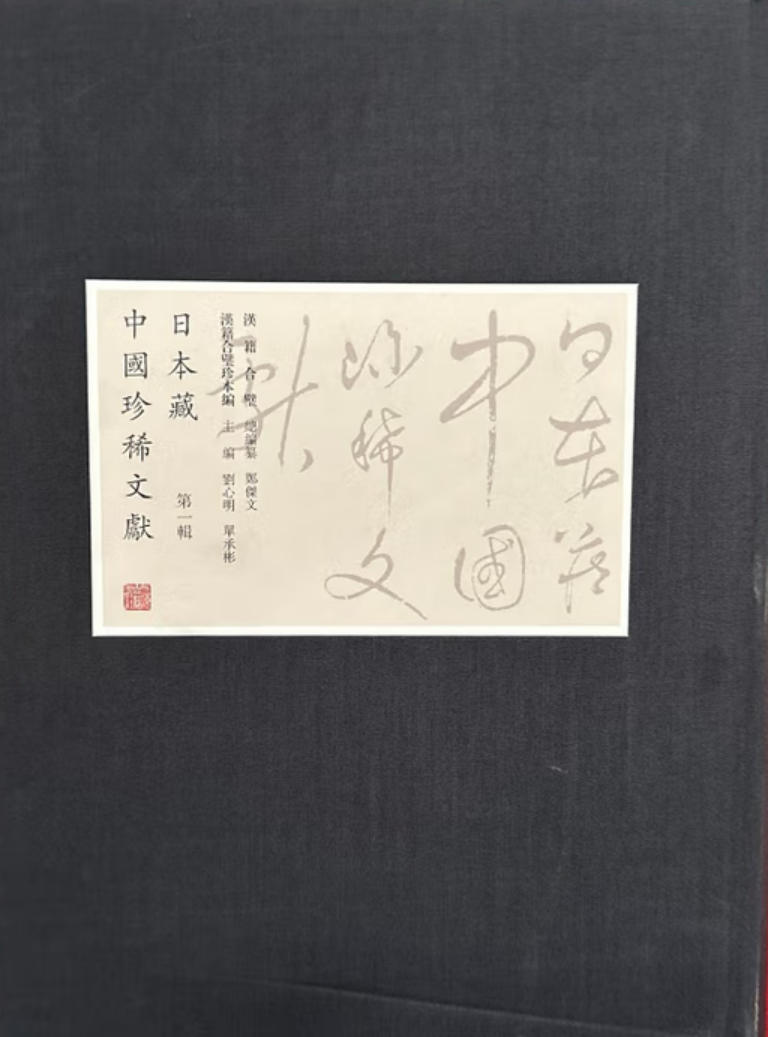 日本藏
中國
珍稀文
獻
漢籍合璧 總編纂 鄭傑文
漢籍合璧珍本編 主編 劉心明 單承彬
日本藏 第一輯
中國珍稀文獻